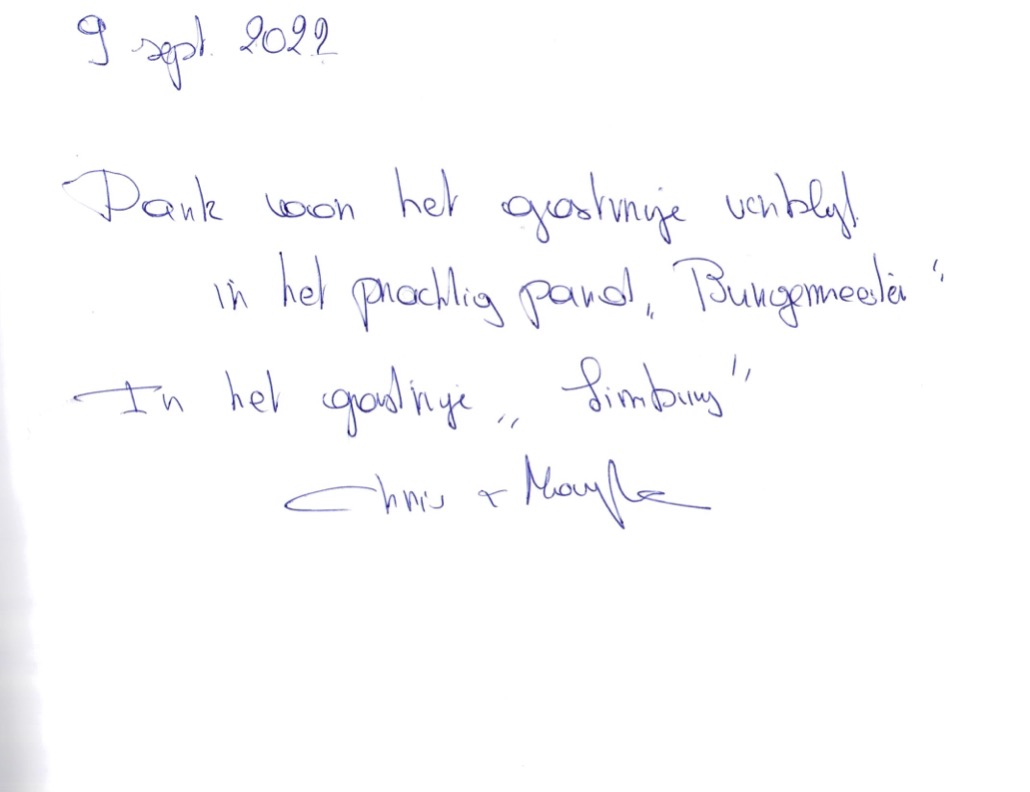 9 sept. 2022
Dank voor het gastvrije verblijf
in het prachtig pand „Burgemeester“
In het gastvrije „Limburg”
Chris +